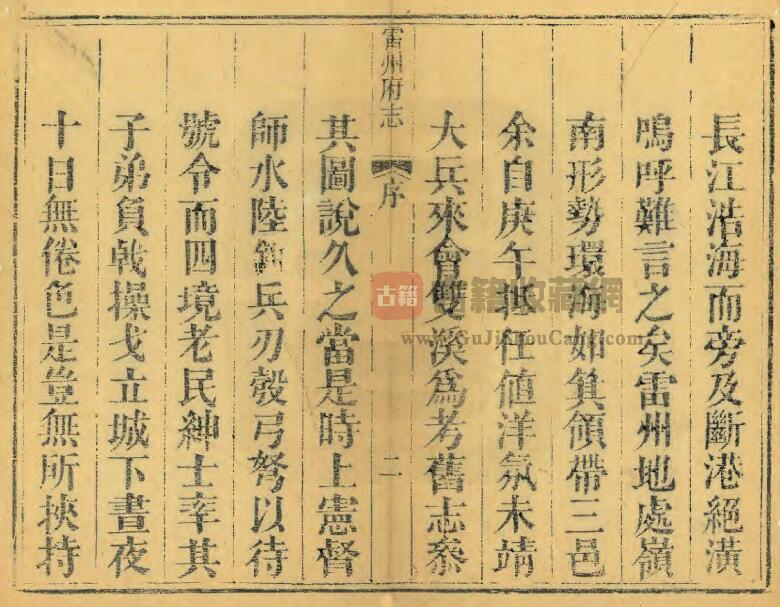 長江浩海而旁及斷港絕潢
嗚呼難言之矣雷州地處嶺
南形勢環海如箕領帶三邑
余自庚午抵任值洋氛未靖
大兵來會雙溪爲考舊志叅
雷州府志
序
二
其圖說久之當是時上憲督
師水陸 兵刃彀弓弩以待
號令而四境老民紳士率其
子弟負戟操戈立城下晝夜
十日無倦色是豈無所挾持
古籍
古籍收藏網
www.GuJiShouCang.com